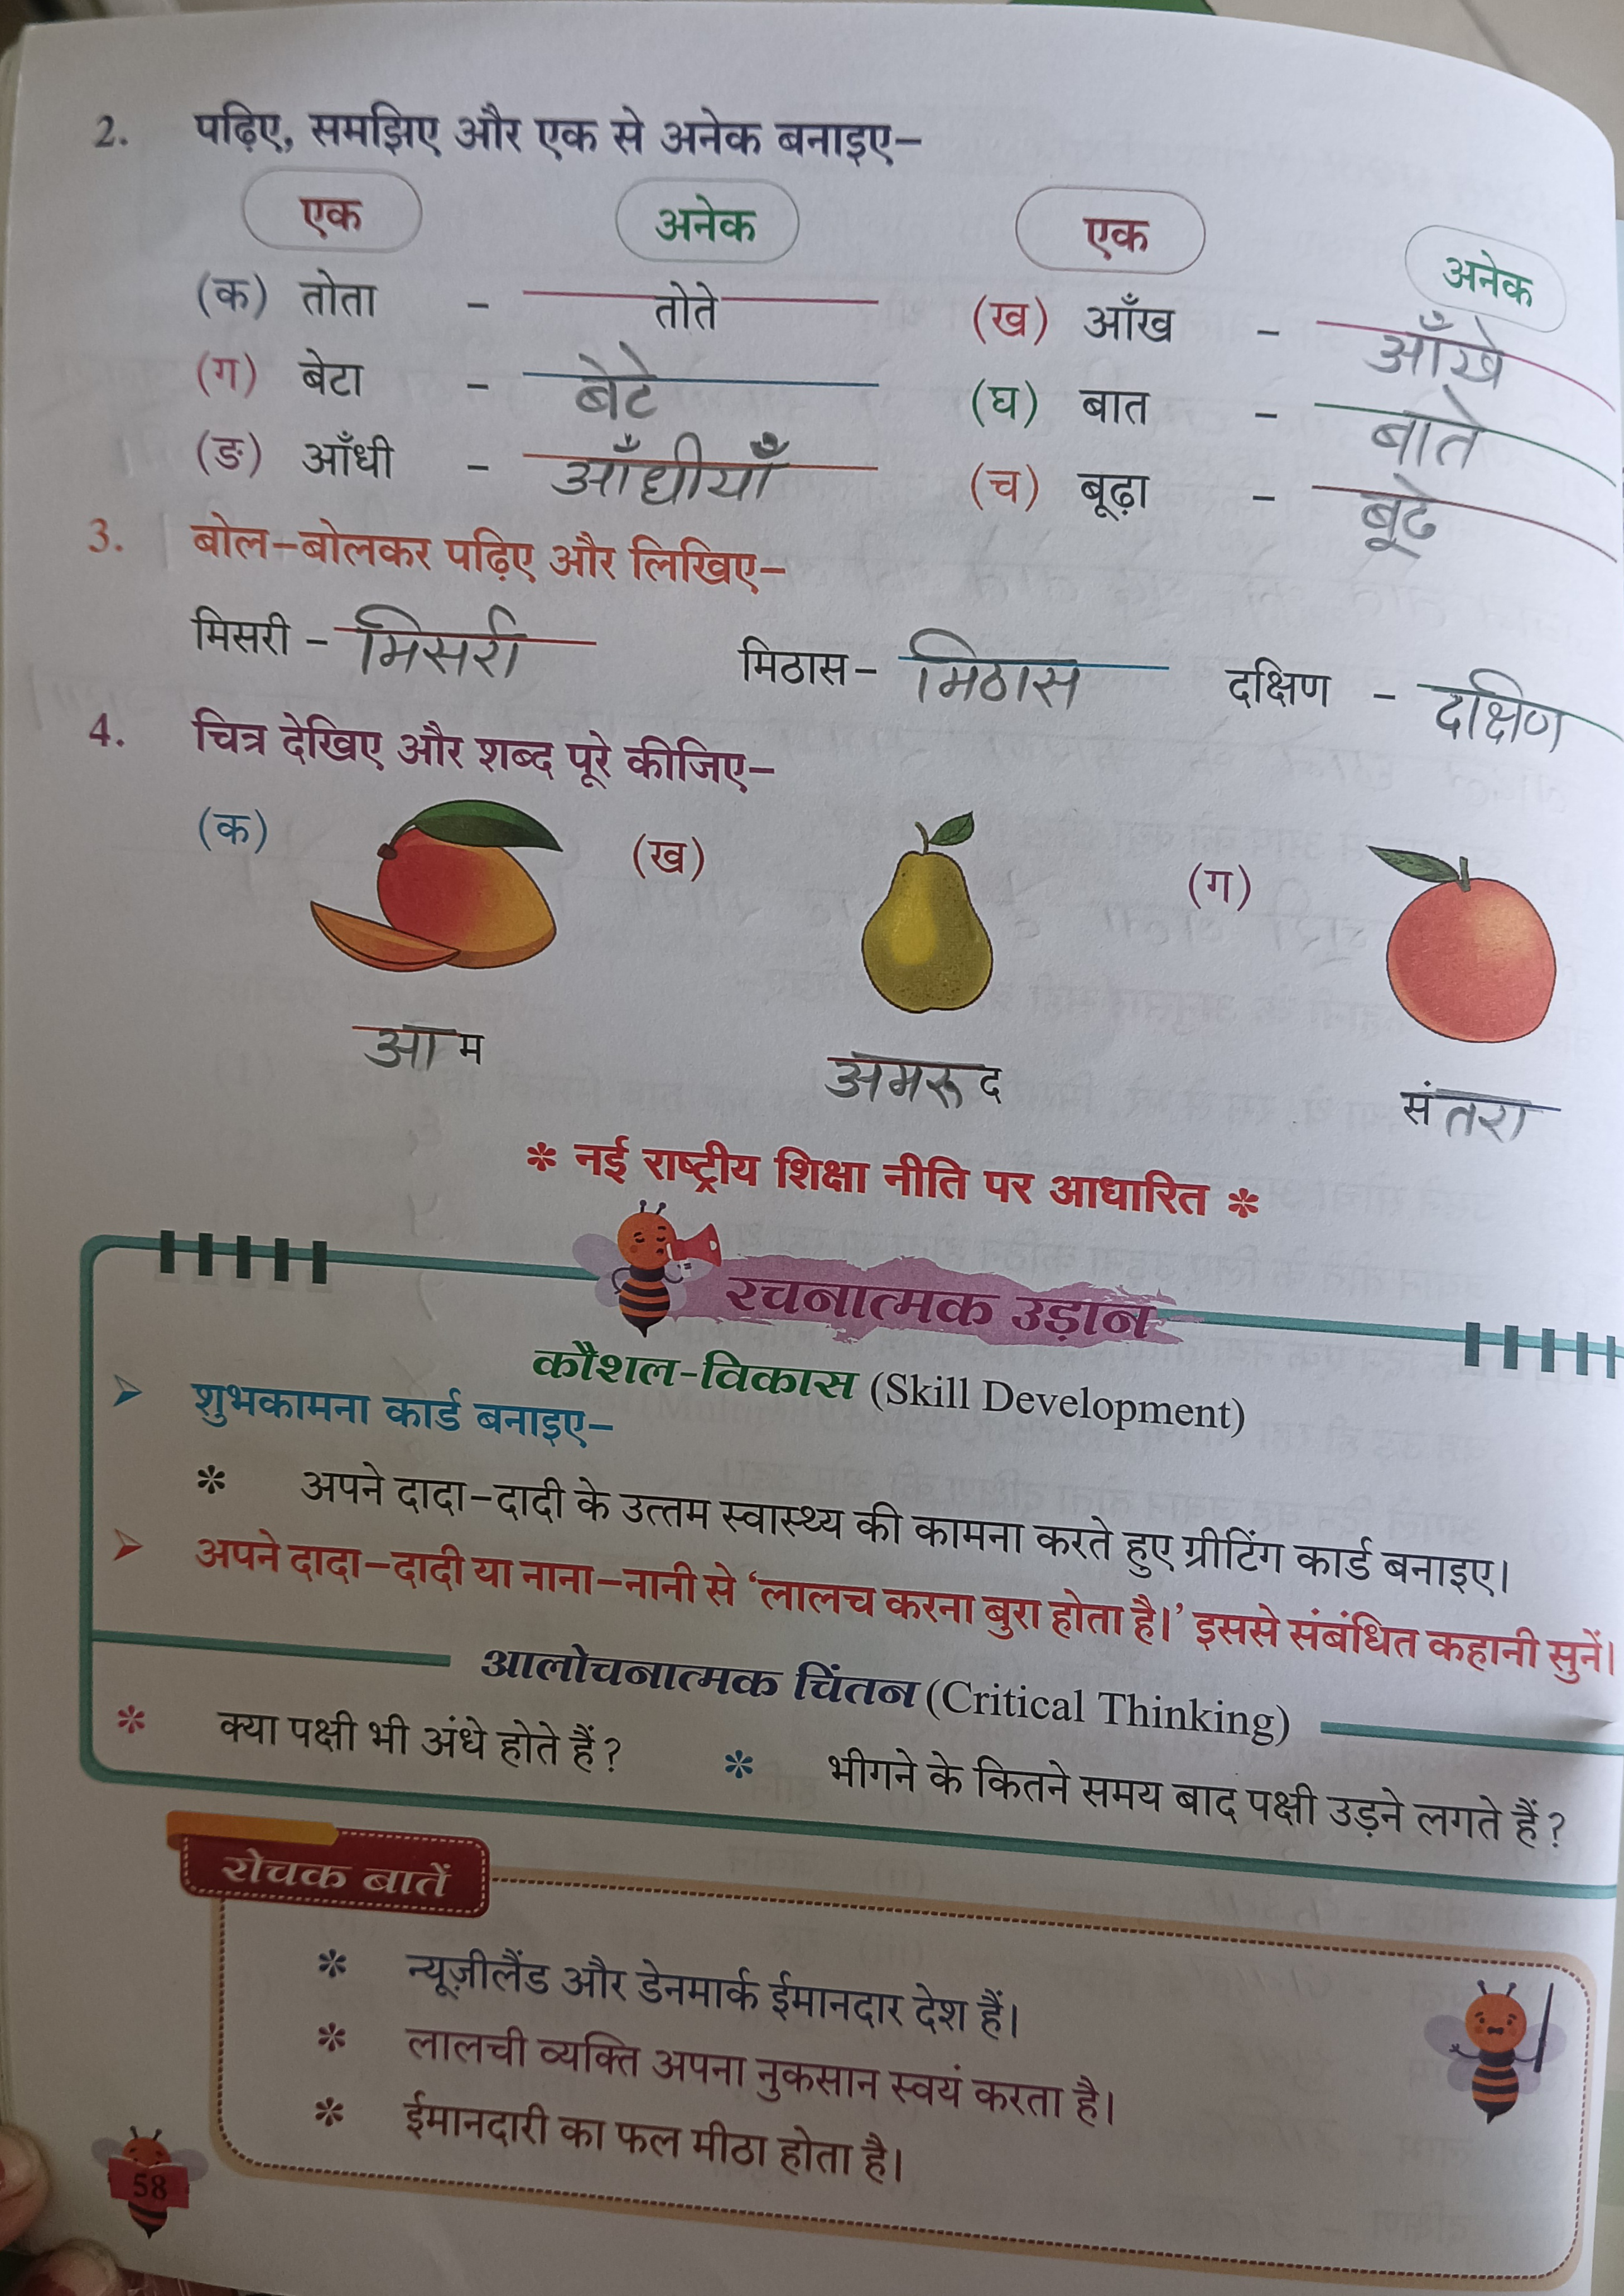 2. पढ़िए, समझिए और एक से अनेक बनाइए–
एक अनेक एक अनेक
(क) तोता – तोते (ख) आँख – आँखे
(ग) बेटा – बेटे (घ) बात – बाते
(ङ) आँधी – आँधीयाँ (च) बूढ़ा – बूढे
3. बोल–बोलकर पढ़िए और लिखिए–
मिसरी – मिसरी मिठास – मिठास दक्षिण – दक्षिण
4. चित्र देखिए और शब्द पूरे कीजिए–
(क) (ख) (ग)
आम अमरूद संतरा
* नई राष्ट्रीय शिक्षा नीति पर आधारित *
रचनात्मक उड़ान
कौशल-विकास (Skill Development)
➢ शुभकामना कार्ड बनाइए–
* अपने दादा–दादी के उत्तम स्वास्थ्य की कामना करते हुए ग्रीटिंग कार्ड बनाइए।
➢ अपने दादा–दादी या नाना–नानी से ‘लालच करना बुरा होता है।’ इससे संबंधित कहानी सुनें।
आलोचनात्मक चिंतन (Critical Thinking)
* क्या पक्षी भी अंधे होते हैं? * भीगने के कितने समय बाद पक्षी उड़ने लगते हैं?
रोचक बातें
* न्यूज़ीलैंड और डेनमार्क ईमानदार देश हैं।
* लालची व्यक्ति अपना नुकसान स्वयं करता है।
* ईमानदारी का फल मीठा होता है।
58